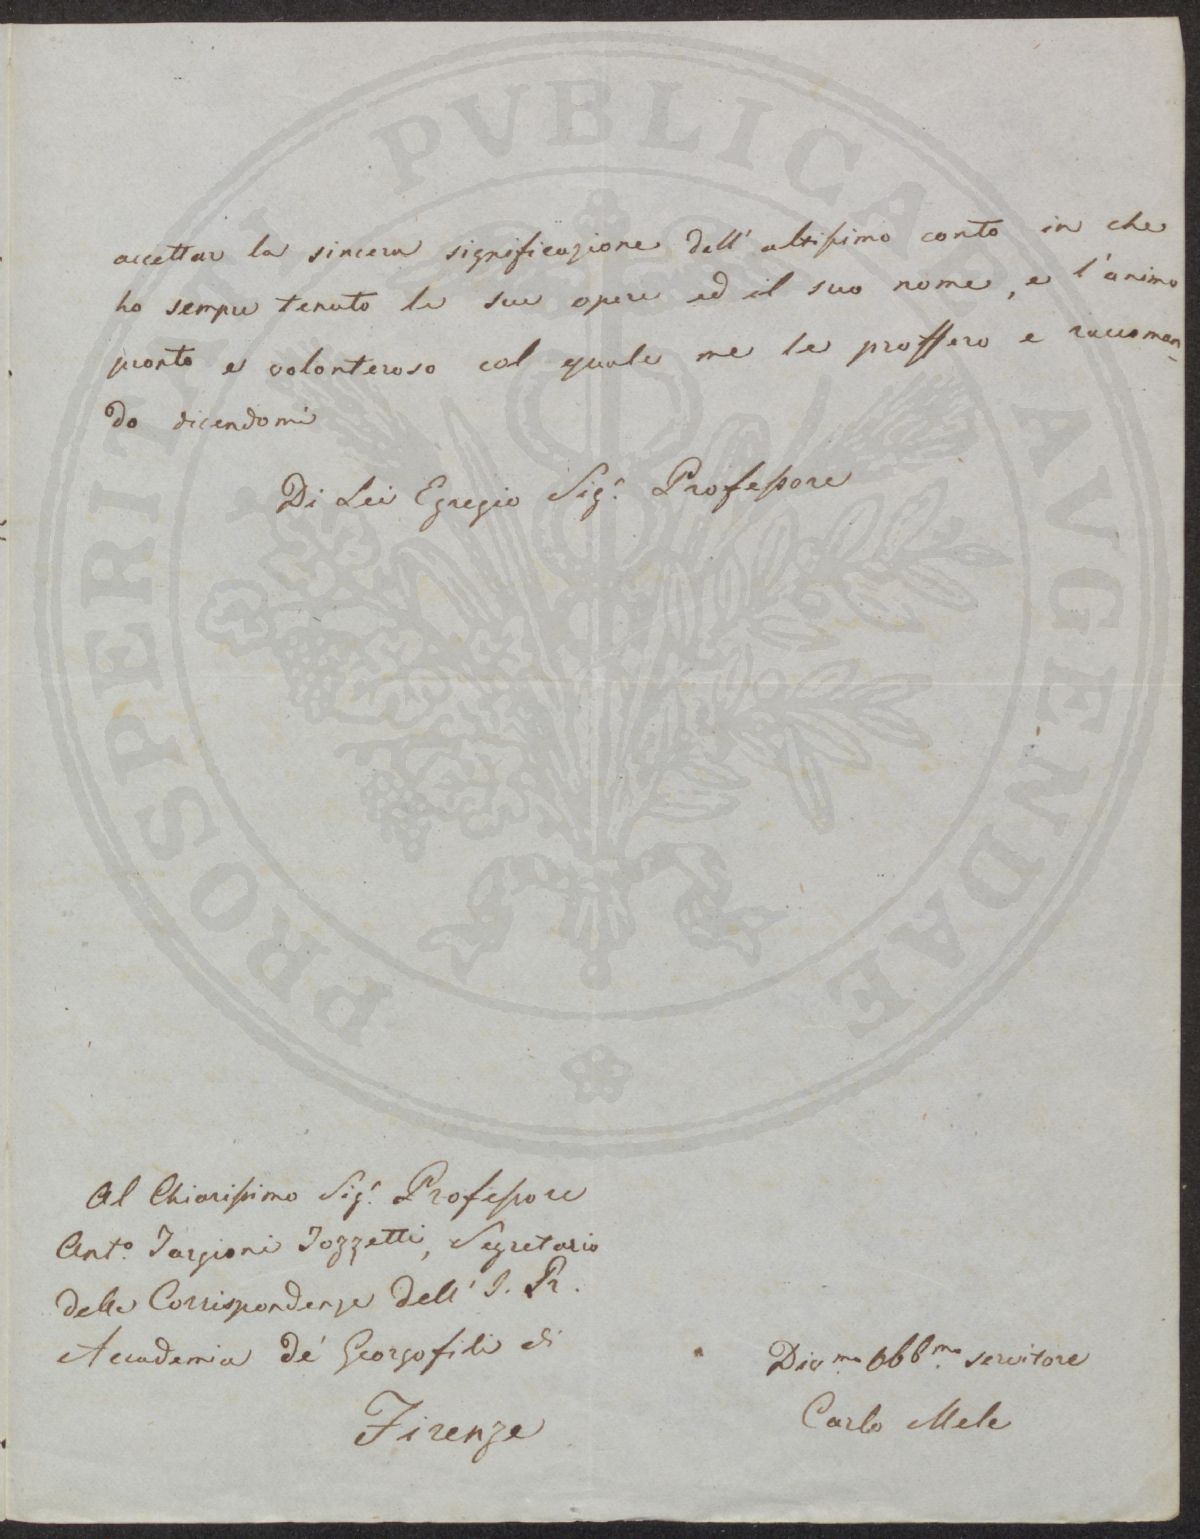 accettar la sincera significazione dell' altissimo conto in che
ho sempre tenuto le sue opere ed il suo nome, e l'animo
pronto e volonteroso col quale me le proffero e raccoman-
do dicendomi
Di Lei Egregio Sig.r Professore
Al Chiarissimo Sig.r Professore
Ant.o Targioni Tozzetti, Segretario
delle Corrispondenze dell' I. R.
Accademia de' Georgofili di
Firenze
Div.mo obb.mo servitore
Carlo Mele
PROSPERITATI PVBLICAE AVGENDAE